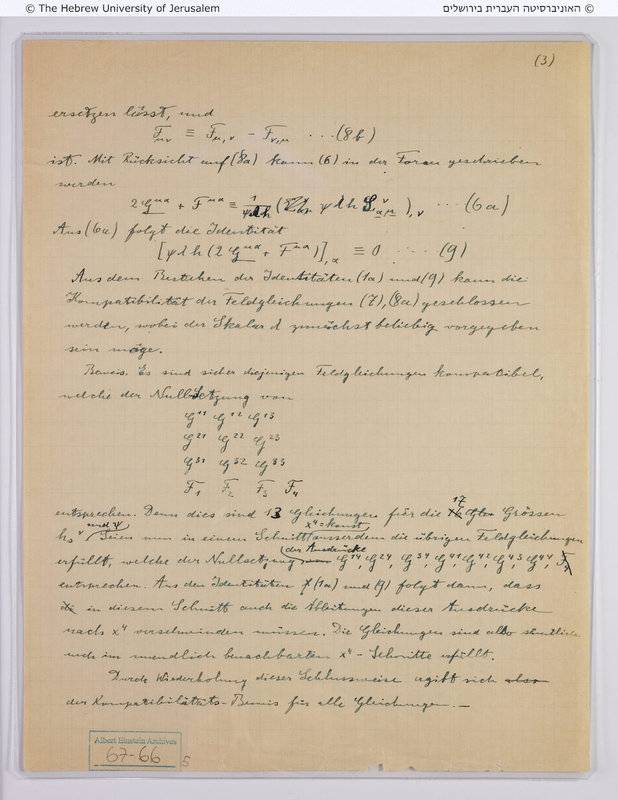 © The Hebrew University of Jerusalem
© האוניברסיטה העברית בירושלים
(3)
ersetzen lässt, und
F_μν ≡ F_μ,ν − F_ν,μ ... (8b)
ist. Mit Rücksicht auf (8a) kann (6) in der Form geschrieben
werden
2 G^μα + F^μα ≡ ... (6a)
Aus (6a) folgt die Identität
[ψ λ h (2 G^μα + F^μα)]_,α ≡ 0 ... (9)
Aus dem Bestehen der Identitäten (1a) und (9) kann die
Kompatibilität der Feldgleichungen (7), (8a) geschlossen
werden, wobei der Skalar λ zunächst beliebig vorgegeben
sein möge.
Beweis. Es sind sicher diejenigen Feldgleichungen kompatibel,
welche der Nullsetzung von
G^11 G^12 G^13
G^21 G^22 G^23
G^31 G^32 G^33
F_1 F_2 F_3 F_4
entsprechen. Denn dies sind 13 Gleichungen für die 17 Grössen
und ψ x^4 = konst.
h_s^ν. Seien nun in einem Schnitt ausserdem die übrigen Feldgleichungen
der Ausdrücke
erfüllt, welche der Nullsetzung G^14, G^24, G^34, G^41, G^42, G^43, G^44
entsprechen. Aus den Identitäten (1a) und (9) folgt dann, dass
in diesem Schnitt auch die Ableitungen dieser Ausdrücke
nach x^4 verschwinden müssen. Die Gleichungen sind also sämtliche
auch im unendlich benachbarten x^4 - Schnitte erfüllt.
Durch Wiederholung dieser Schlussweise ergibt sich
der Kompatibilitäts-Beweis für alle Gleichungen. —
Albert Einstein Archives
67-66
5